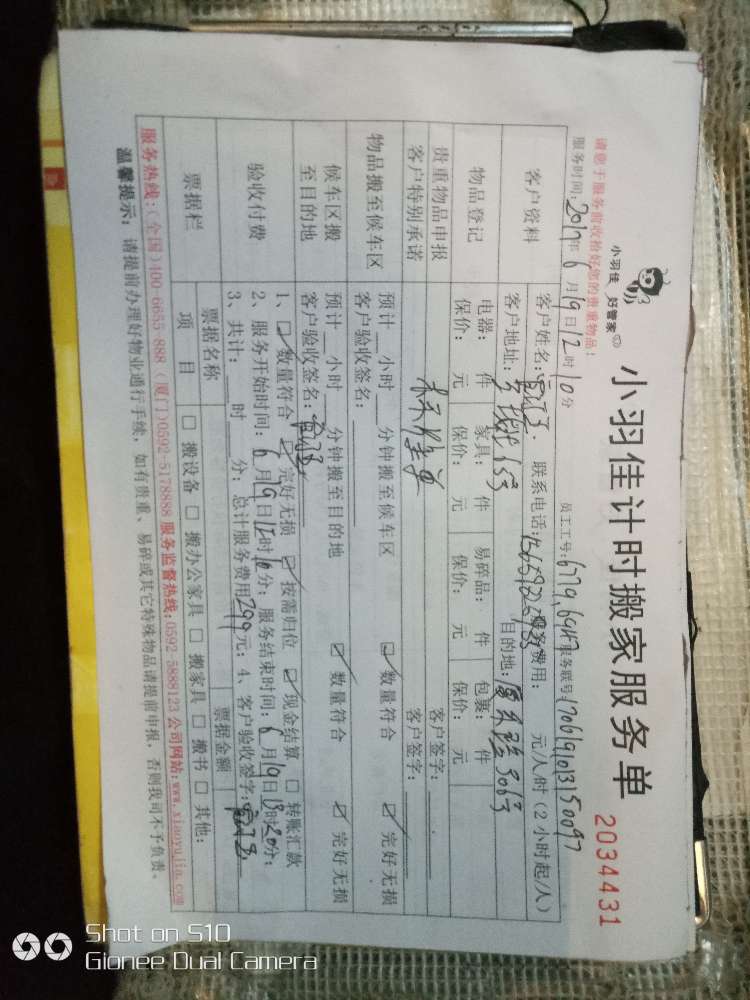 小羽佳 好管家
小羽佳计时搬家服务单
2034431
请您于服务前收拾好您的贵重物品！
服务时间：2017年6月19日12时10分 员工工号：6779,6947 服务联号：1706191013150097
客户资料
客户姓名： 联系电话： 服务费用： 元/人/时（2小时起/人）
客户地址： 目的地：
物品登记
电器： 件 家具： 件 易碎品： 件 包裹： 件
保价： 元 保价： 元 保价： 元 保价： 元
贵重物品申报
客户签字：
客户特别承诺
客户签字：
物品搬至候车区
预计 小时 分钟搬至候车区 ☑数量符合 ☑完好无损
客户验收签名：
候车区搬
至目的地
预计 小时 分钟搬至目的地 ☑数量符合 ☑完好无损
客户验收签名：
验收付费
1、☑数量符合 ☑完好无损 ☑按需归位 ☑现金结算 □转账汇款
2、服务开始时间：6月19日12时10分；服务结束时间：6月19日13时20分；
3、共计： 时 分；总计服务费用299元；4、客户验收签字：
票据栏
票据名称 票据金额
项目 □搬设备 □搬办公家具 □搬家具 □搬书 □其他：
服务热线：(全国)400-6655-888（厦门)0592-5178888 服务监督热线：0592-5888123 公司网站：www.xiaoyujia.com
温馨提示：请提前办理好物业通行手续，如有贵重、易碎或其它特殊物品请提前申报，否则我司不予负责。
Shot on S10
Gionee Dual Camera